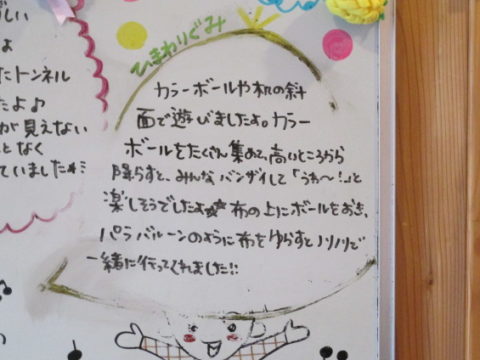 しい
よ
たトンネル
たよ♪
が見えない
となく
ていました
ひまわりぐみ
カラーボールや机の斜
面で遊びましたよ。カラー
ボールをたくさん集めて、高いところから
降らすと、みんなバンザイして「うわ～!」と
楽しそうでしたよ 布の上にボールをおき、
パラバルーンのように布をゆらすとノリノリで
一緒に行ってくれました!!